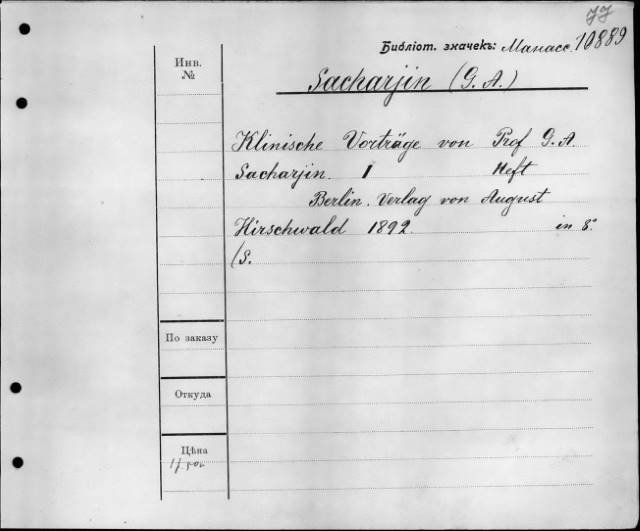 JJ
Библіот. значекъ: Манасс. 10889
Инв.
№
Sacharjin (G. A.)
Klinische Vorträge von Prof G. A.
Sacharjin. I Heft
Berlin. Verlag von August
Hirschwald 1892. in 8°
(S.
По заказу
Откуда
Цѣна